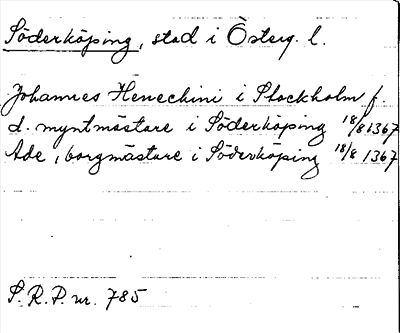 Söderköping, stad i Österg. l.
Johannes Henechini i Stockholm f.
d. myntmästare i Söderköping 18/8 1367
Ade, borgmästare i Söderköping 18/8 1367
S.R.P. nr. 785